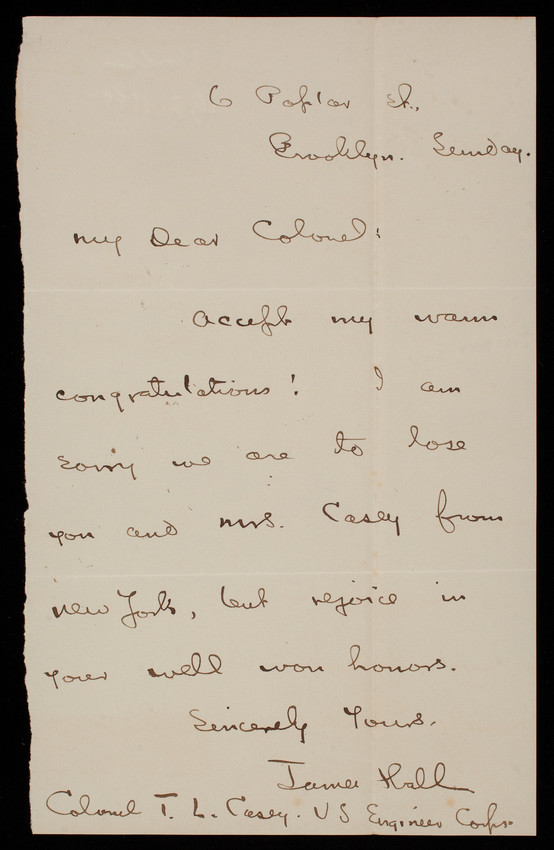 6 Poplar St.,
Brooklyn. Sunday.
My Dear Colonel:
Accept my warm
congratulations! I am
sorry we are to lose
you and Mrs. Casey from
New York, but rejoice in
your well won honors.
Sincerely Yours.
James Hall
Colonel T. L. Casey. US Engineer Corps.